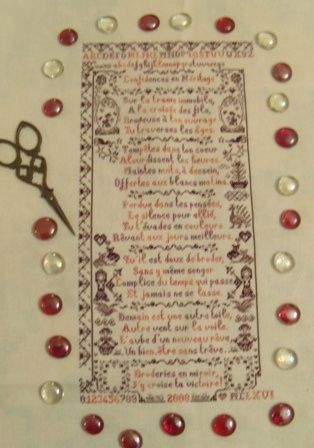 ABCDEFGHIJKLMNOPQRSTUVWXYZ
abcdefghijklmnopqrstuvwxyz
Confidences en Héritage
Sur la trame immobile,
A la croisée des fils,
Brodeuse à ton ouvrage
Tu traverses les âges.
Tempêtes dans ton coeur
Alourdissent les heures.
Maintes nuits, à dessein,
Offertes aux blancs matins.
Perdue dans tes pensées,
Le silence pour allié,
Tu t'évades en couleurs
Rêvant aux jours meilleurs.
Qu'il est doux de broder,
Sans y même songer
Complice du temps qui passe
Et jamais ne se lasse.
Demain est une autre toile,
Autre vent sur la voile.
L'aube d'un nouveau rêve,
Un bien être sans trêve..
Broderies en miroir,
J'y croise ta victoire!
0123456789 2008